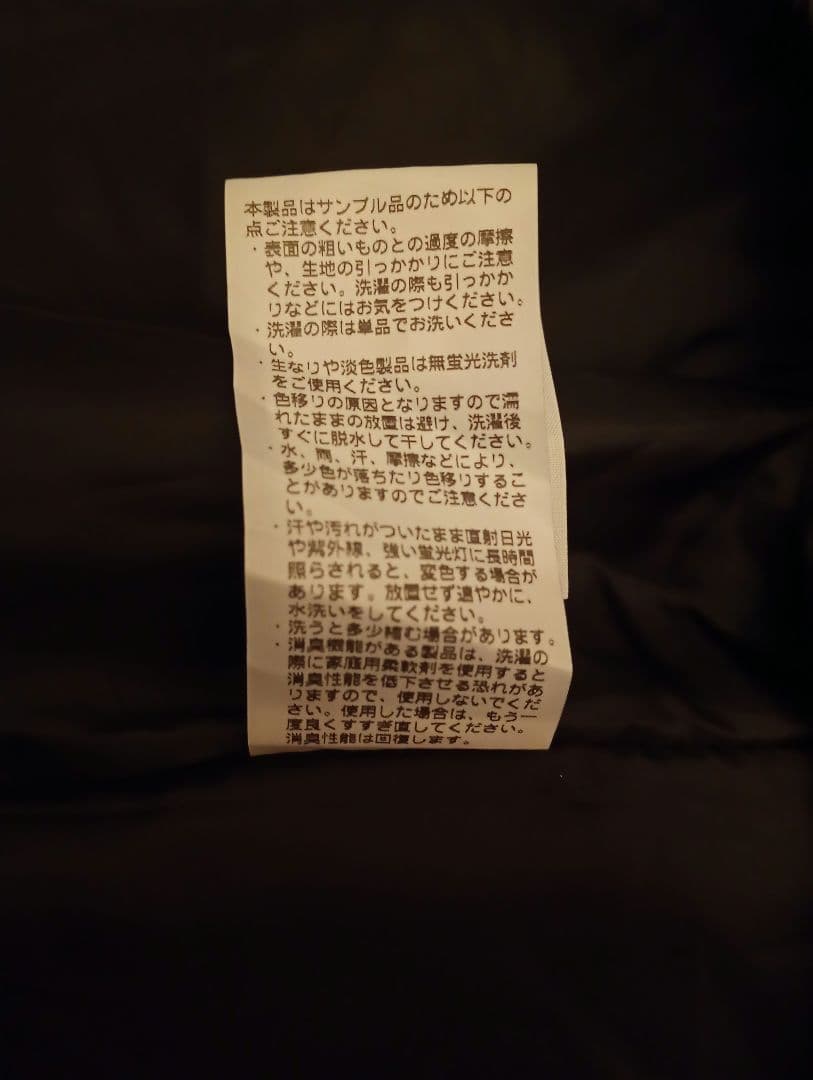 本製品はサンプル品のため以下の
点ご注意ください。
・表面の粗いものとの過度の摩擦
や、生地の引っかかりにご注意
ください。洗濯の際も引っかか
りなどにはお気をつけください。
・洗濯の際は単品でお洗いくださ
い。
・生なりや淡色製品は無蛍光洗剤
をご使用ください。
・色移りの原因となりますので濡
れたままの放置は避け、洗濯後
すぐに脱水して干してください。
・水、雨、汗、摩擦などにより、
多少色が落ちたり色移りするこ
とがありますのでご注意くださ
い。
・汗や汚れがついたまま直射日光
や紫外線、強い蛍光灯に長時間
照らされると、変色する場合が
あります。放置せず速やかに、
水洗いをしてください。
・洗うと多少縮む場合があります。
・消臭機能がある製品は、洗濯の
際に家庭用柔軟剤を使用すると
消臭性能を低下させる恐れがあ
りますので、使用しないでくだ
さい。使用した場合は、もう一
度良くすすぎ直してください。
消臭性能は回復します。